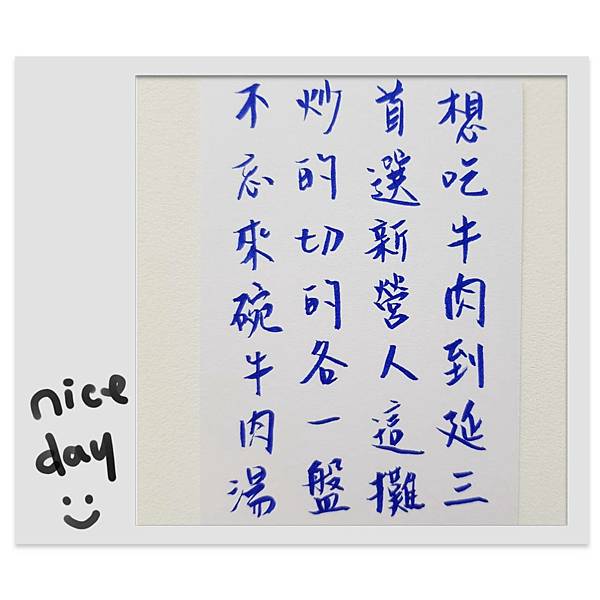 想吃牛肉到延三
首選新營人這攤
炒的切的各一盤
不忘來碗牛肉湯
nice
day